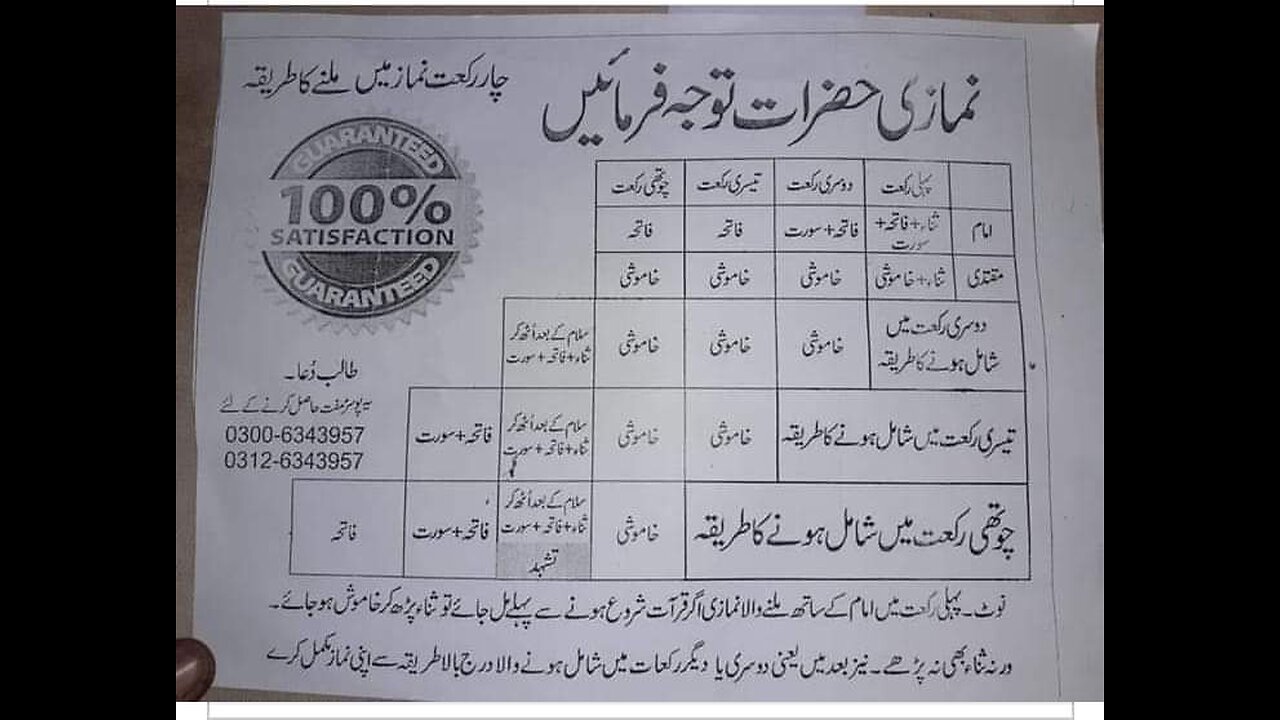 نمازی حضرات توجہ فرمائیں
چار رکعت نماز میں ملنے کا طریقہ
GUARANTEED
100%
SATISFACTION
GUARANTEED
پہلی رکعت دوسری رکعت تیسری رکعت چوتھی رکعت
امام ثناء+فاتحہ+ فاتحہ+سورت فاتحہ فاتحہ
سورت
مقتدی ثناء+خاموشی خاموشی خاموشی خاموشی
دوسری رکعت میں خاموشی خاموشی خاموشی سلام کے بعد اُٹھ کر
شامل ہونے کا طریقہ ثناء+فاتحہ+سورت
تیسری رکعت میں شامل ہونے کا طریقہ خاموشی خاموشی سلام کے بعد اُٹھ کر فاتحہ+سورت
ثناء+فاتحہ+سورت
چوتھی رکعت میں شامل ہونے کا طریقہ خاموشی سلام کے بعد اُٹھ کر فاتحہ+سورت فاتحہ
ثناء+فاتحہ+سورت
تشہد
طالب دُعا۔
یہ پوسٹر مفت حاصل کرنے کے لئے
0300-6343957
0312-6343957
نوٹ۔ پہلی رکعت میں امام کے ساتھ ملنے والا نمازی اگر قرآت شروع ہونے سے پہلے مل جائے تو ثناء پڑھ کر خاموش ہو جائے۔
ورنہ ثناء بھی نہ پڑھے۔ نیز بعد میں یعنی دوسری یا دیگر رکعات میں شامل ہونے والا درج بالا طریقہ سے اپنی نماز مکمل کرے